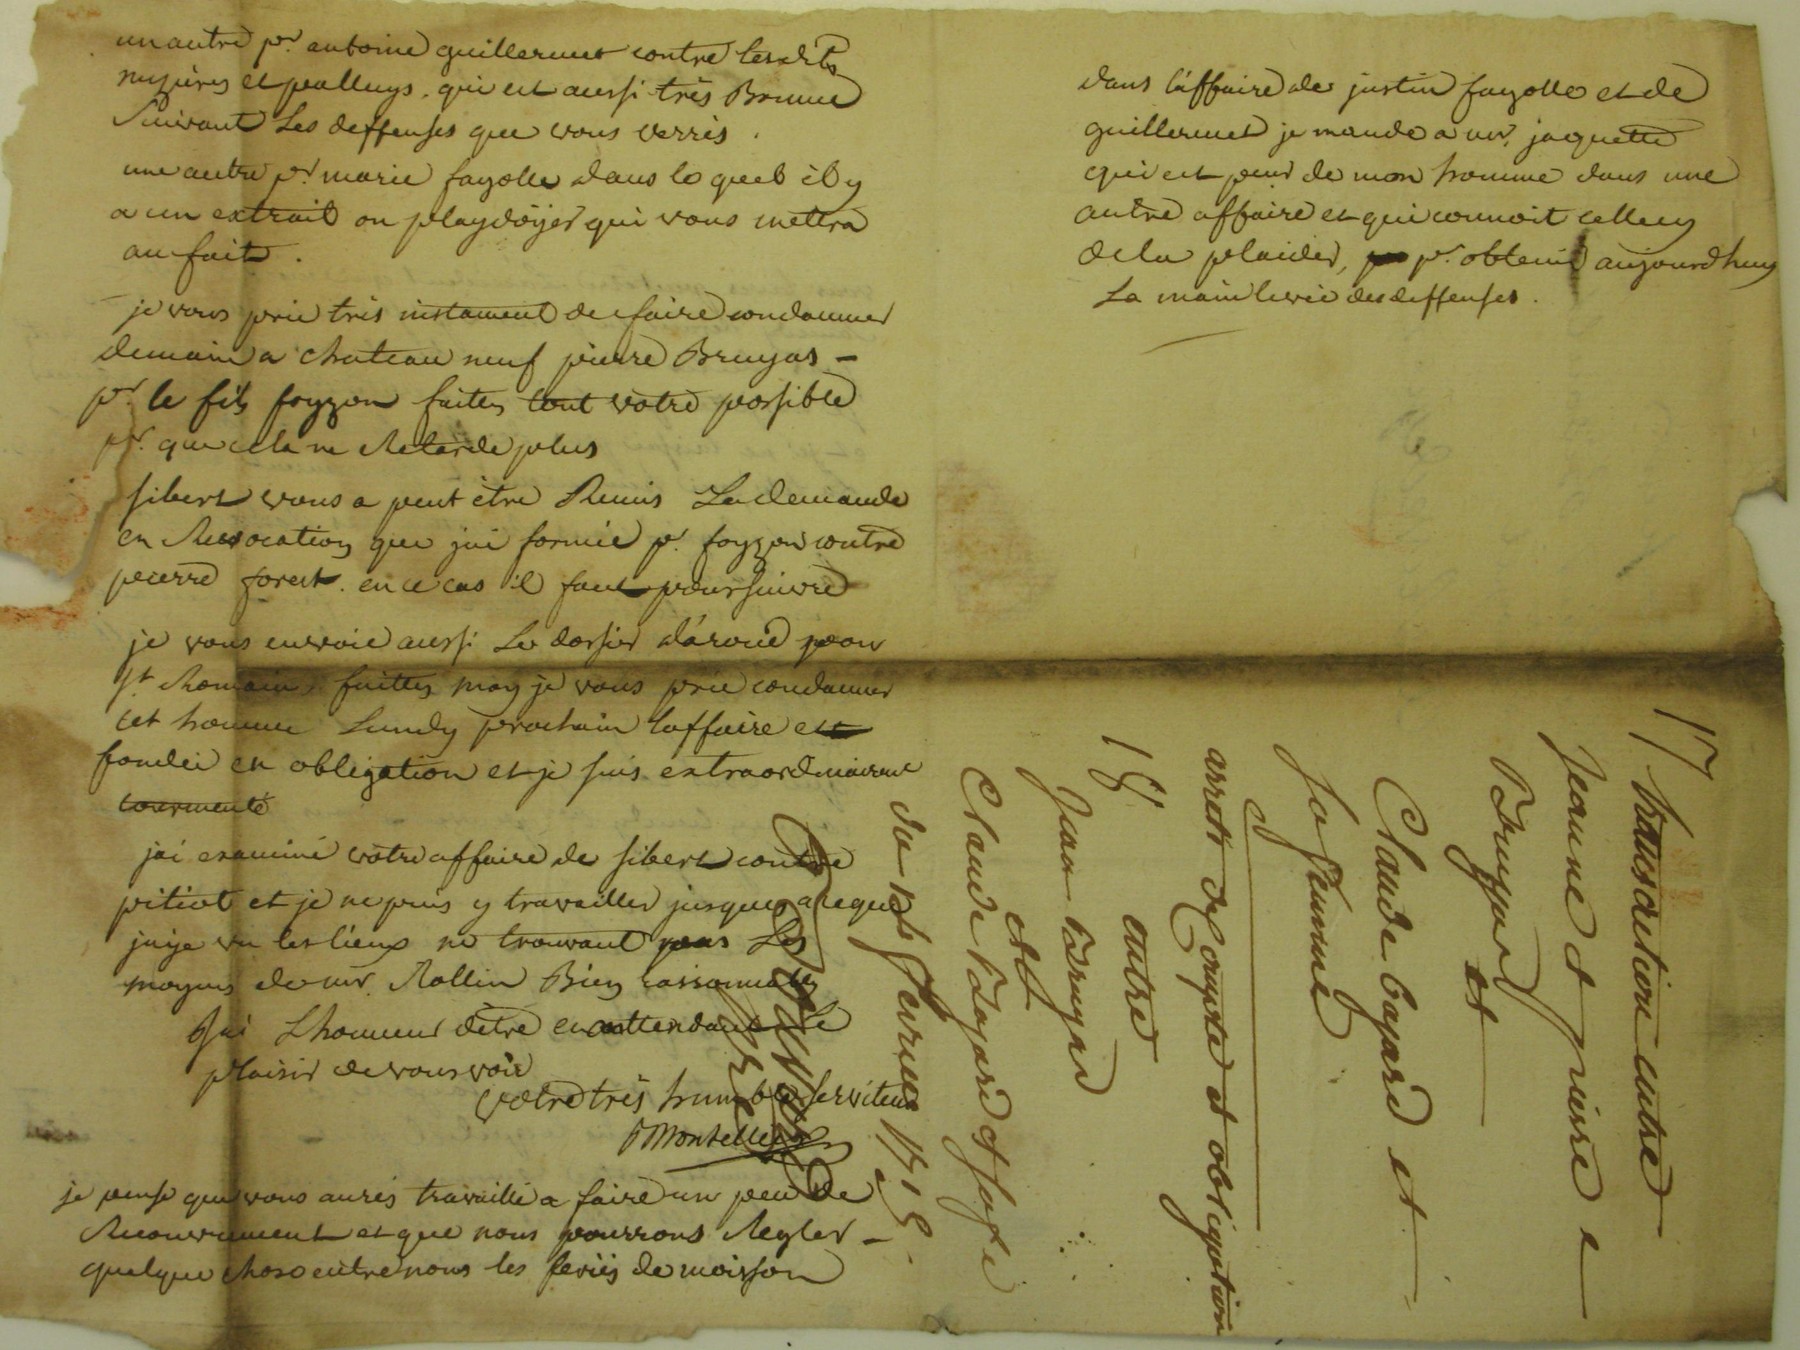 un autre pr. antoine guillermet contre lesdits
et palluys. qui est aussi très Bonne
Suivant Les deffenses que vous verrés.
une autre pr. marie fayolle dans lequel il y
a un extrait ou playdoÿer qui vous mettra
au fait.
je vous prie très instament de faire condamner
demain a chateau neuf pierre Bruyas -
pr. le fils fayzon faites tout votre possible
pr. que cela ne Retarde plus
sibert vous a peut être Remis La demande
en Revocation que jai formée pr. fayzon contre
pierre forest. en ce cas il faut poursuivre
je vous envoie aussi Le dossier
st. Romain, faittes moy je vous prie condamner
cet homme Lundy prochain laffaire est
fondée en obligation et je suis extraordinairemt
tourmenté
jai examiné vôtre affaire de sibert contre
pitiot et je ne puis y travailler jusques a ce que
jaije vu les lieux ne trouvant pas Les
moyens de mr. Rollin Bien raisonnables
Jai Lhonneur dêtre en attendant Le
plaisir de vous voir
vôtre très humble serviteur
Montellier
je pense que vous aurés travaillé a faire un peu de
Recouvrement et que nous pourrons Regler -
quelque chose entre nous les feries de moisson
dans laffaire de justin fayolle et de
guillermet je mande a mr. jaquette
qui est pour de mon homme dans une
autre affaire et qui connoit celle cy
de la plaider, pr. obtenir aujourdhuy
La main levée des deffenses.
17 transaction entre
Jeanne et pierre
Bruyard et
Claude bayard et
sa femme
arreté de Compte et obligation
18 entre
Jean Bruyas
et
Claude Bayard et sa fe
du